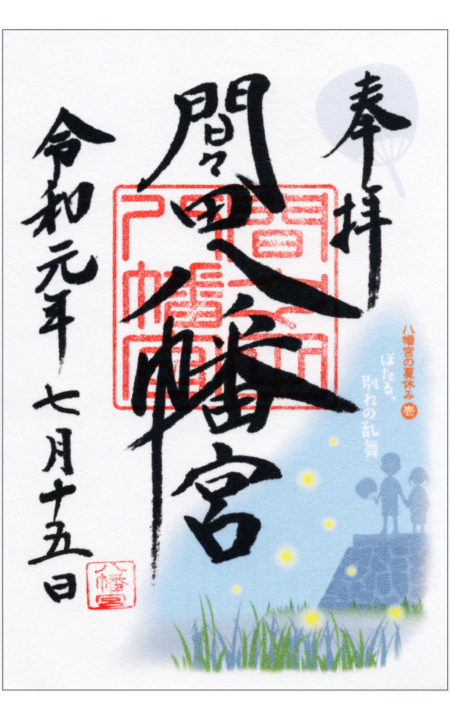 奉拝
八幡宮の夏休み 壱
ほたる、
別れの乱舞
間々田八幡宮
令和元年 七月十五日
八幡宮